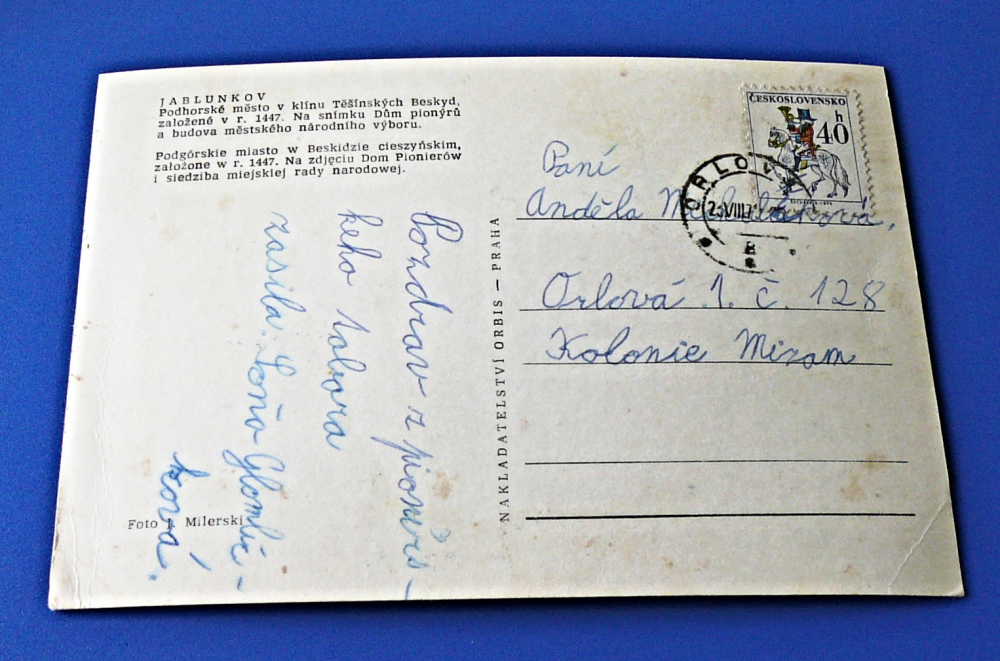 JABLUNKOV
Podhorské město v klínu Těšínských Beskyd,
založené v r. 1447. Na snímku Dům pionýrů
a budova městského národního výboru.
Podgórskie miasto w Beskidzie cieszyńskim,
założone w r. 1447. Na zdjęciu Dom Pionierów
i siedziba miejskiej rady narodowej.
Pozdrav z pionýrs-
keho tabora
zasila Soňa Glombíč-
ková.
Foto Milerski
NAKLADATELSTVÍ ORBIS — PRAHA
ČESKOSLOVENSKO
h
40
ORLOV
VIII
Paní
Anděla
Orlová 1. č. 128
Kolonie Mizam